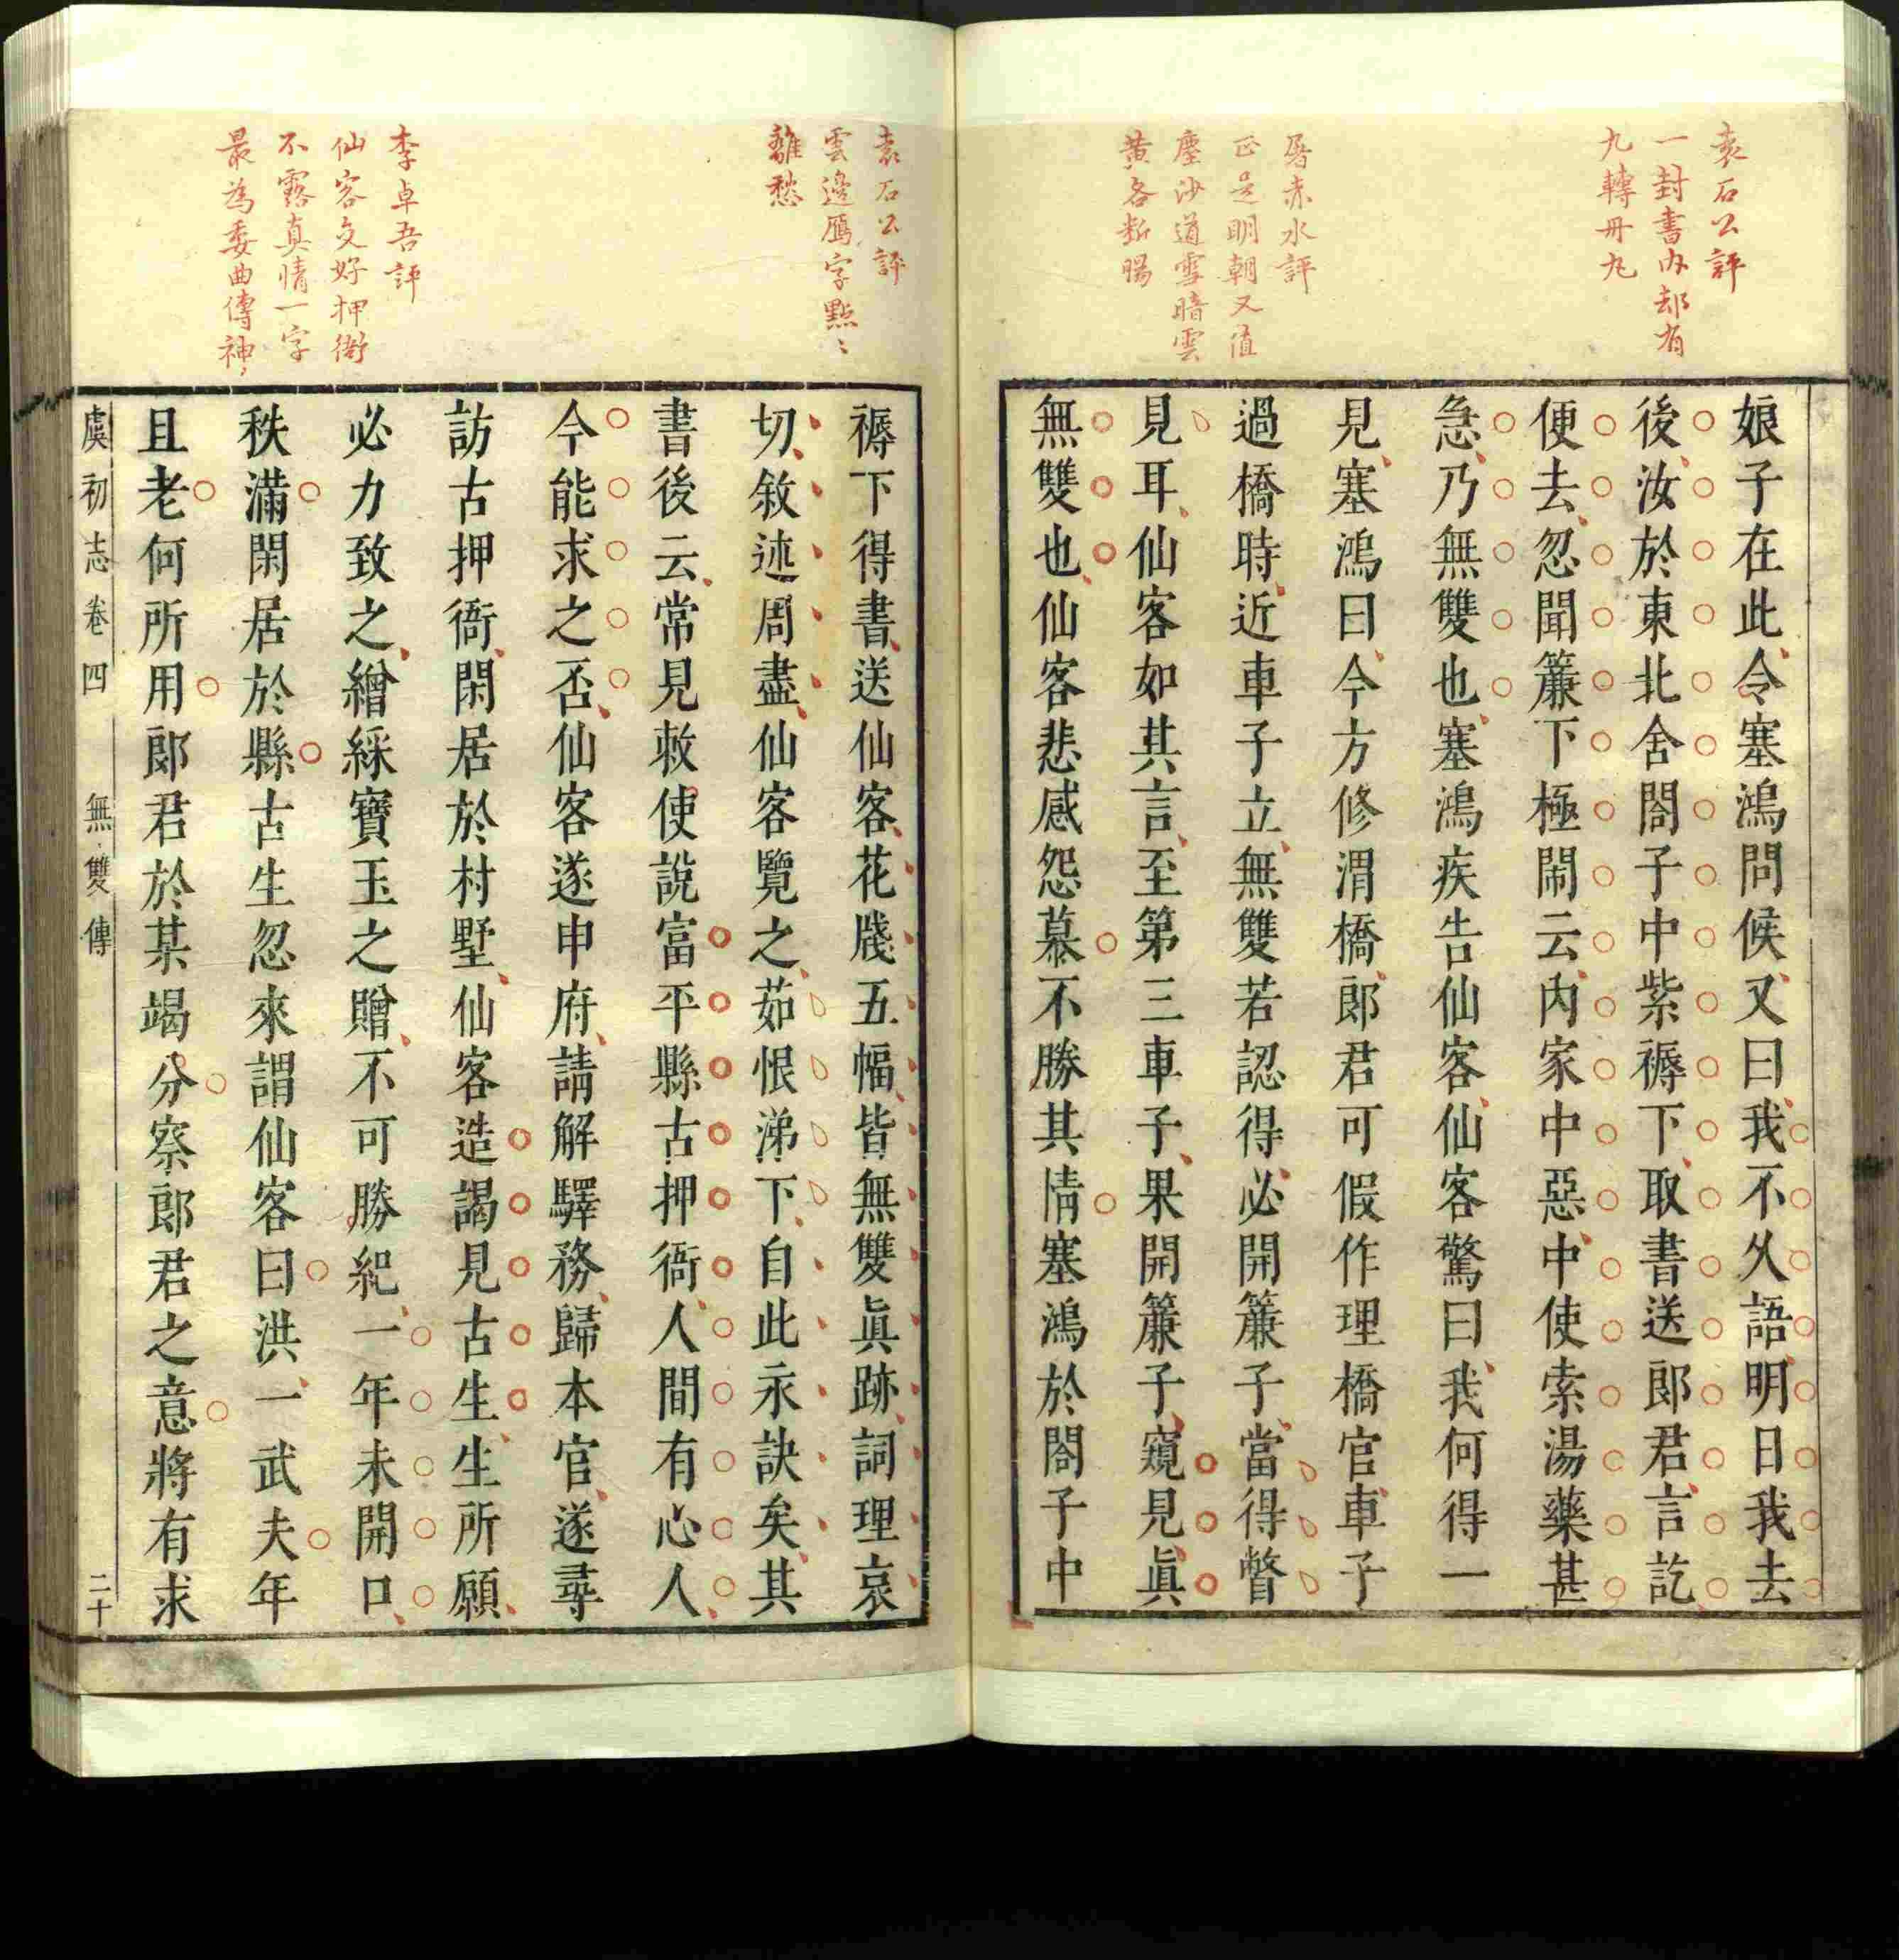 袁石公評
一封書內却有
九轉丹九
屠赤水評
正是明朝又值
塵沙道雪暗雲
黃各斷腸
娘子在此令塞鴻問候又曰我不久語明日我去
後汝於東北舍閤子中紫褥下取書送郎君言訖
便去忽聞簾下極鬧云內家中惡中使索湯藥甚
急乃無雙也塞鴻疾告仙客仙客驚曰我何得一
見塞鴻曰今方修渭橋郎君可假作理橋官車子
過橋時近車子立無雙若認得必開簾子當得瞥
見耳仙客如其言至第三車子果開簾子窺見眞
無雙也仙客悲感怨慕不勝其情塞鴻於閤子中
袁石公評
雲邊鴈字點〻
離愁
李卓吾評
仙客交好押衙
不露真情一字
最為委曲傳神
褥下得書送仙客花牋五幅皆無雙眞跡詞理哀
切敘述周盡仙客覽之茹恨涕下自此永訣矣其
書後云常見敕使說富平縣古押衙人間有心人
今能求之否仙客遂申府請解驛務歸本官遂尋
訪古押衙閑居於村墅仙客造謁見古生生所願
必力致之繒綵寶玉之贈不可勝紀一年未開口
秩滿閑居於縣古生忽來謂仙客曰洪一武夫年
且老何所用郎君於某竭分察郎君之意將有求
虞初志卷四 無雙傳 二十